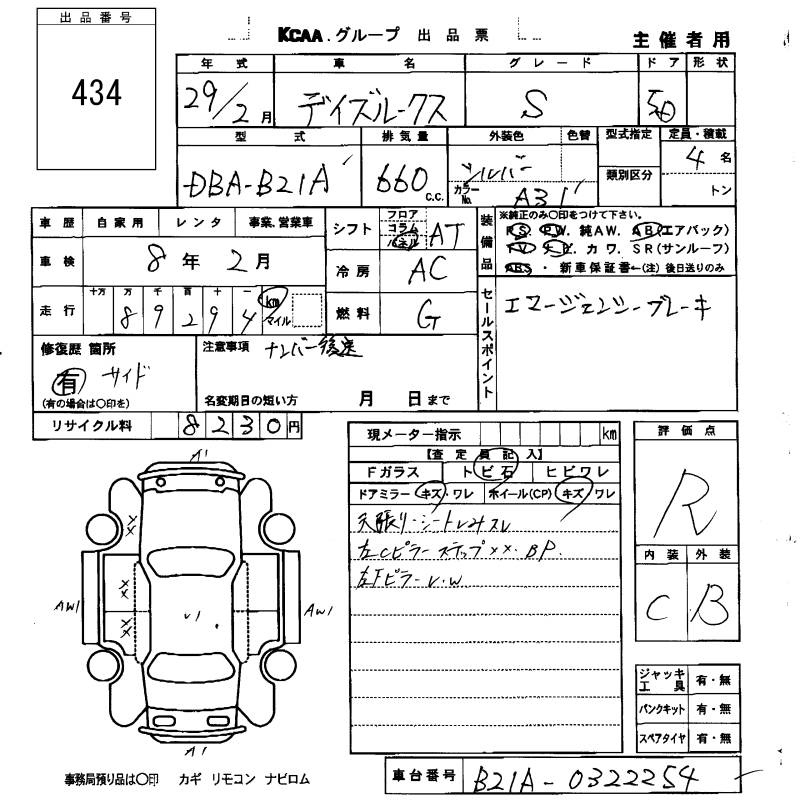 出品番号
434
KCAA.グループ 出品票
主催者用
年式 車名 グレード ドア 形状
29/2月 デイズルークス S 5D
型式 排気量 外装色 色替 型式指定 定員・積載
DBA-B21A 660 C.C. シルバー 類別区分 4名
カラーNo. A31 トン
車歴 自家用 レンタ 事業、営業車
車検 8年2月
走行 十万 万 千 百 十 一
8 9 2 9 4 km マイル
シフト フロア コラム パネル AT
冷房 AC
燃料 G
装備品
※純正のみ〇印をつけて下さい。
PS. PW. 純AW. AB(エアバック)
TV. ナビ. カワ. SR(サンルーフ)
ABS ・ 新車保証書←(注) 後日送りのみ
セールスポイント
エマージェンシーブレーキ
修復歴 箇所
有 サイド
(有の場合は〇印を)
注意事項 ナンバー後送
名変期日の短い方 月 日まで
リサイクル料 8230円
現メーター指示 km
【査定員記入】
Fガラス トビ石 ヒビワレ
ドアミラー キズ・ワレ ホイール(CP) キズ ワレ
天張リ・シートしみスレ
左Cピラー ステップ××. BP.
左Fピラーレ.W
評価点
R
内装 外装
C B
A1
×× ××
AW1 レ1 AW1
A1
ジャッキ工具 有・無
パンクキット 有・無
スペアタイヤ 有・無
事務局預り品は〇印 カギ リモコン ナビロム
車台番号 B21A-0322254